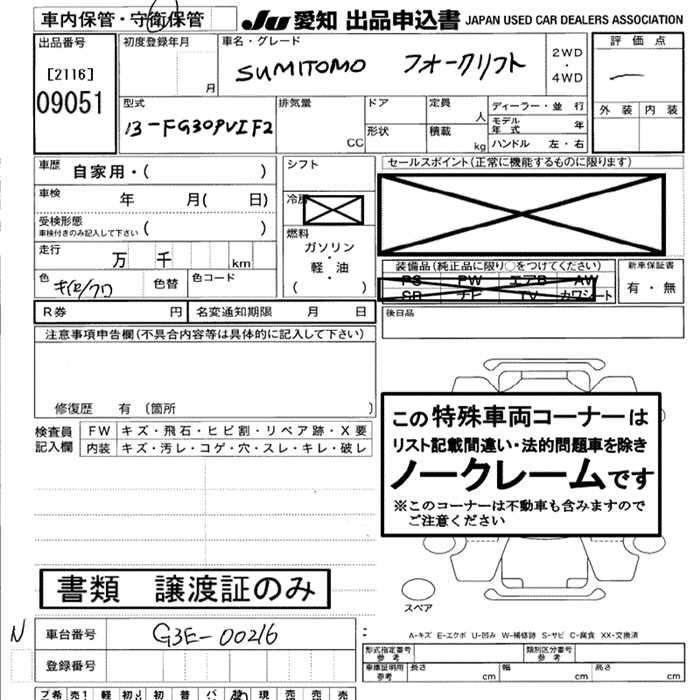 車内保管・守衛保管
JU 愛知 出品申込書 JAPAN USED CAR DEALERS ASSOCIATION
出品番号
[2116]
09051
初度登録年月
月
車名・グレード
SUMITOMO フォークリフト
2WD
・
4WD
評価点
外装 内装
型式
13-FG30PVIF2
排気量
CC
ドア
形状
定員
人
積載
kg
ディーラー・並行
モデル年式 年
ハンドル 左・右
車歴 自家用・( )
車検 年 月( 日)
受検形態
車検付きのみ記入して下さい ( )
走行 万 千 km
色
色替
色コード
シフト
冷房
燃料
ガソリン
・
軽・油
( )
セールスポイント(正常に機能するものに限ります)
装備品(純正品に限り○をつけてください)
PS PW エアB AW
SR ナビ TV カワシート
新車保証書
有・無
後日品
R券 円
名変通知期限 月 日
注意事項申告欄(不具合内容等は具体的に記入して下さい)
修復歴 有 〔箇所 〕
検査員
記入欄
FW キズ・飛石・ヒビ割・リペア跡・X要
内装 キズ・汚レ・コゲ・穴・スレ・キレ・破レ
この特殊車両コーナーは
リスト記載間違い・法的問題車を除き
ノークレームです
※このコーナーは不動車も含みますので
ご注意ください
書類 譲渡証のみ
スペア
N
車台番号 G3E-00216
登録番号
A-キズ E-エクボ U-凹み W-補修跡 S-サビ C-腐食 XX-交換済
形式指定番号
参考
類別区分番号
参考
車庫証明用
参考
長さ cm
幅 cm
高さ cm